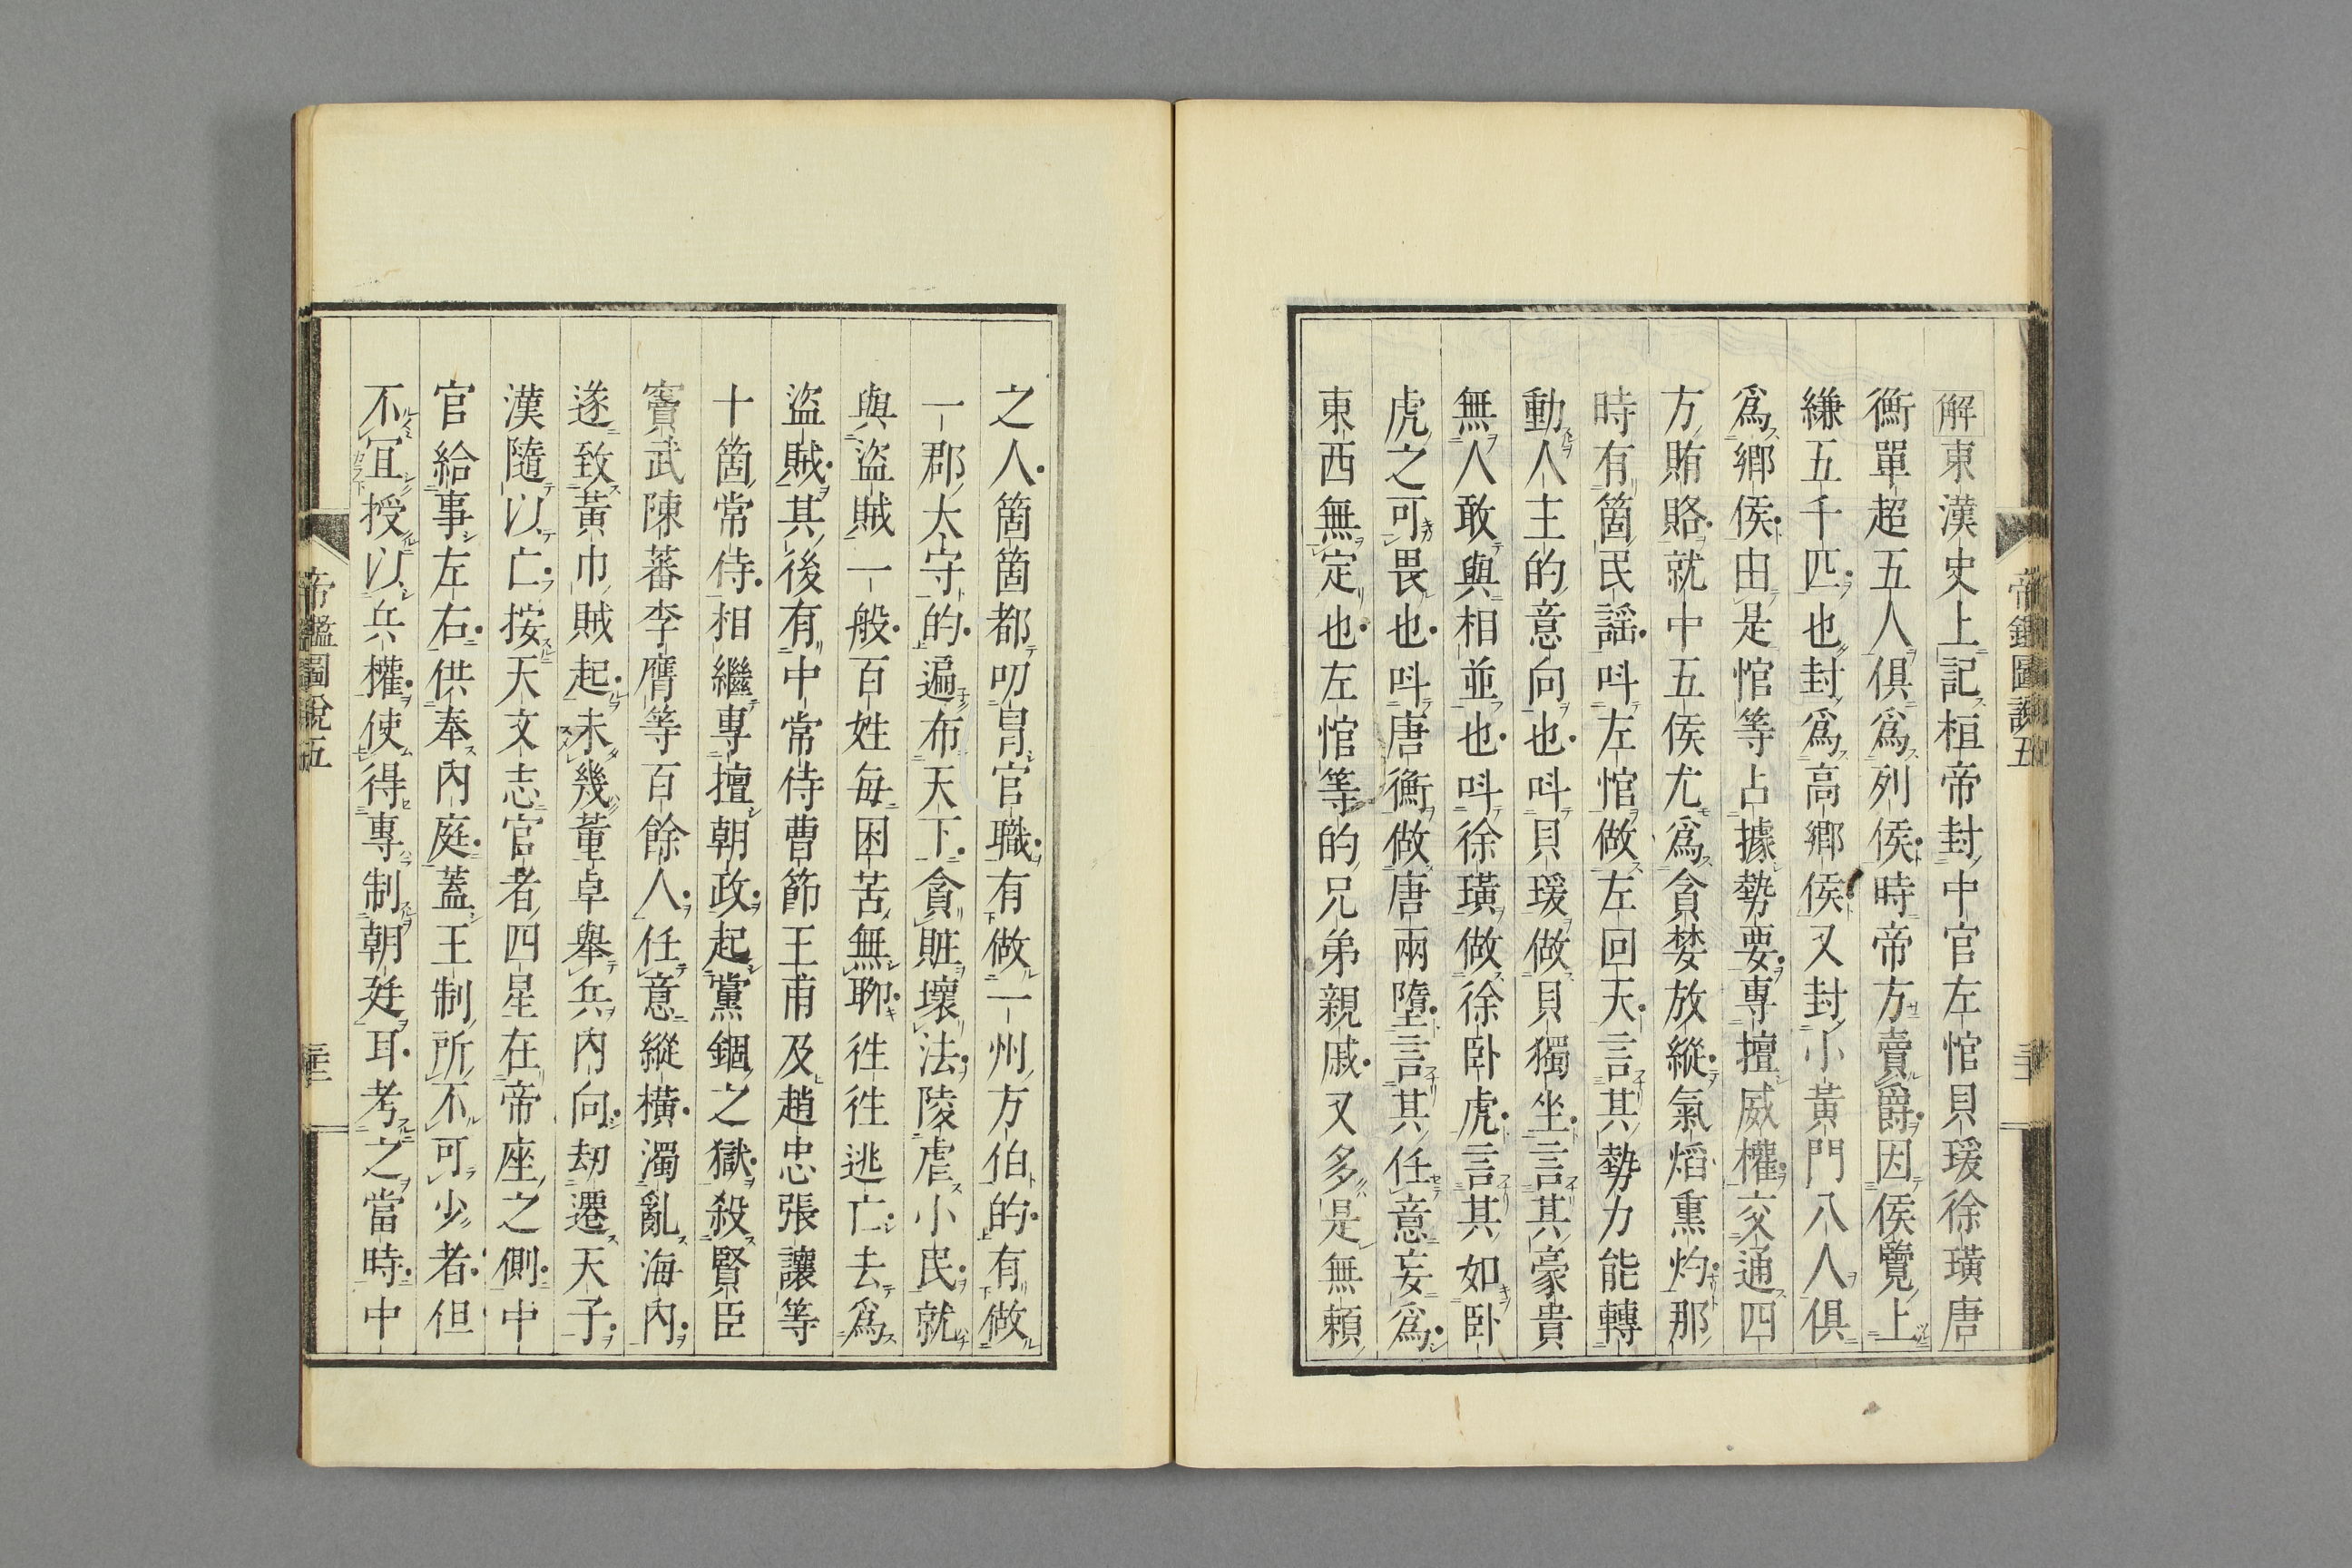 解東漢史上記桓帝封中官左悺貝瑗徐璜唐
衡單超五人俱為列侯時帝方賣爵因侯覽上
縑五千匹也封為高鄉侯又封小黃門八人俱
爲鄉侯由是悺等占據勢要專擅威權交通四
方賄賂就中五侯尤爲貪婪放縱氣焰熏灼那
時有箇民謡呌左悺做左回天言其勢力能轉
動人主的意向也呌貝瑗做貝獨坐言其豪貴
無人敢與相並也呌徐璜做徐卧虎言其如卧
虎之可畏也呌唐衡做唐兩墮言其任意妄爲
東西無定也左悺等的兄弟親戚又多是無頼
之人箇箇都叨冐官職有做一州方伯的有做
一郡太守的遍布天下貪賍壞法陵虐小民就
與盜賊一般百姓每困苦無聊徃徃逃亡去爲
盜賊其後有中常侍曹節王甫及趙忠張讓等
十箇常侍相繼專擅朝政起黨錮之獄殺賢臣
竇武陳蕃李膺等百餘人任意縱橫濁亂海內
遂致黃巾賊起未幾董卓舉兵內向刧遷天子
漢隨以亡按天文志官者四星在帝座之側中
官給事左右供奉內庭蓋王制所不可少者但
不冝授以兵權使得專制朝廷耳考之當時中
帝鑑圖說五